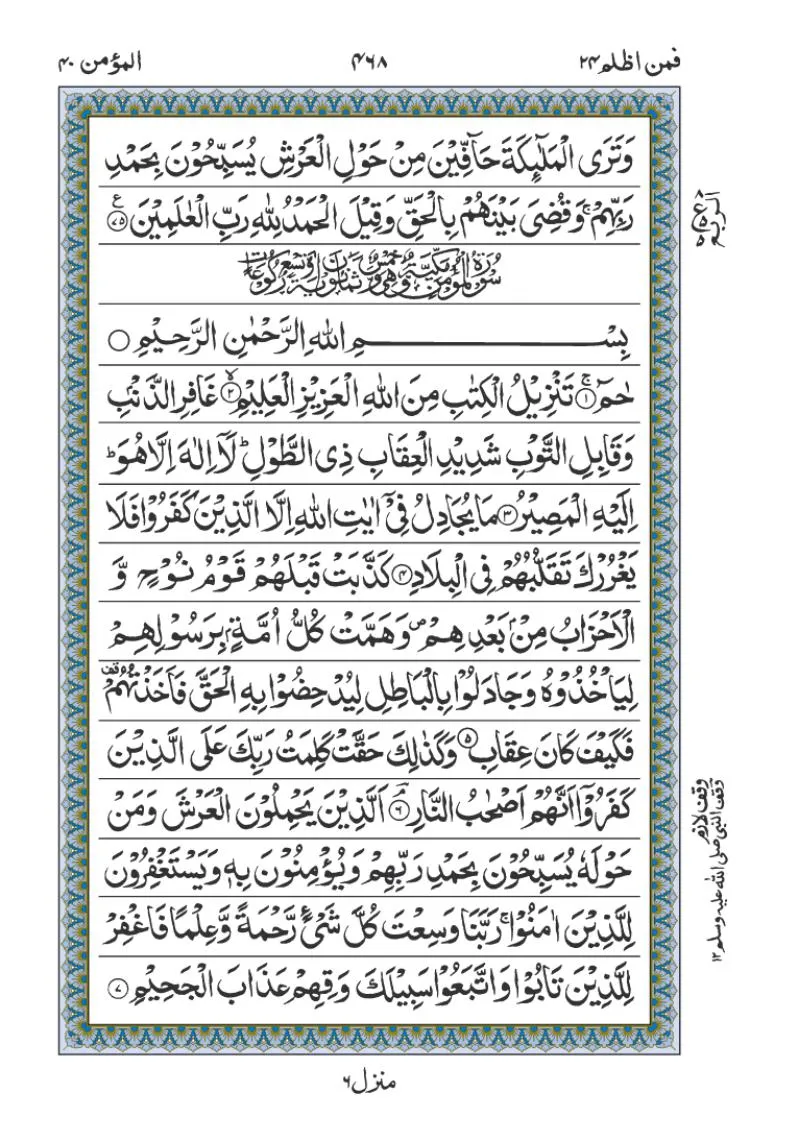 المؤمن ۴۰
۴۶۸
فمن اظلم ۲۴
وَتَرَى الْمَلٰٓىِٕكَةَ حَآفِّيْنَ مِنْ حَوْلِ الْعَرْشِ يُسَبِّحُوْنَ بِحَمْدِ
رَبِّهِمْ ۚ وَقُضِىَ بَيْنَهُمْ بِالْحَقِّ وَقِيْلَ الْحَمْدُ لِلّٰهِ رَبِّ الْعٰلَمِيْنَ ۧ ﴿۷۵﴾
سُوْرَةُ الْمُؤْمِنِ مَكِّيَّةٌ وَّهِىَ خَمْسٌ وَّثَمَانُوْنَ اٰيَةً وَّتِسْعُ رُكُوْعَاتٍ
بِسْمِ اللّٰهِ الرَّحْمٰنِ الرَّحِيْمِ
حٰمٓ ۚ ﴿۱﴾ تَنْزِيْلُ الْكِتٰبِ مِنَ اللّٰهِ الْعَزِيْزِ الْعَلِيْمِ ۙ ﴿۲﴾ غَافِرِ الذَّنْۢبِ
وَقَابِلِ التَّوْبِ شَدِيْدِ الْعِقَابِ ذِى الطَّوْلِ ؕ لَآ اِلٰهَ اِلَّا هُوَ ؕ
اِلَيْهِ الْمَصِيْرُ ﴿۳﴾ مَا يُجَادِلُ فِىْٓ اٰيٰتِ اللّٰهِ اِلَّا الَّذِيْنَ كَفَرُوْا فَلَا
يَغْرُرْكَ تَقَلُّبُهُمْ فِى الْبِلَادِ ﴿۴﴾ كَذَّبَتْ قَبْلَهُمْ قَوْمُ نُوْحٍ وَّ
الْاَحْزَابُ مِنْۢ بَعْدِهِمْ ۪ وَهَمَّتْ كُلُّ اُمَّةٍۭ بِرَسُوْلِهِمْ
لِيَاْخُذُوْهُ وَجَادَلُوْا بِالْبَاطِلِ لِيُدْحِضُوْا بِهِ الْحَقَّ فَاَخَذْتُهُمْ ۫ قف
فَكَيْفَ كَانَ عِقَابِ ﴿۵﴾ وَكَذٰلِكَ حَقَّتْ كَلِمَتُ رَبِّكَ عَلَى الَّذِيْنَ
كَفَرُوْٓا اَنَّهُمْ اَصْحٰبُ النَّارِ ۘ ﴿۶﴾ اَلَّذِيْنَ يَحْمِلُوْنَ الْعَرْشَ وَمَنْ
حَوْلَهٗ يُسَبِّحُوْنَ بِحَمْدِ رَبِّهِمْ وَيُؤْمِنُوْنَ بِهٖ وَيَسْتَغْفِرُوْنَ
لِلَّذِيْنَ اٰمَنُوْا ۚ رَبَّنَا وَسِعْتَ كُلَّ شَىْءٍ رَّحْمَةً وَّعِلْمًا فَاغْفِرْ
لِلَّذِيْنَ تَابُوْا وَاتَّبَعُوْا سَبِيْلَكَ وَقِهِمْ عَذَابَ الْجَحِيْمِ ﴿۷﴾
وقف لازم
وقف النبی صلی اللہ علیہ وسلم ۱۲
منزل ۶